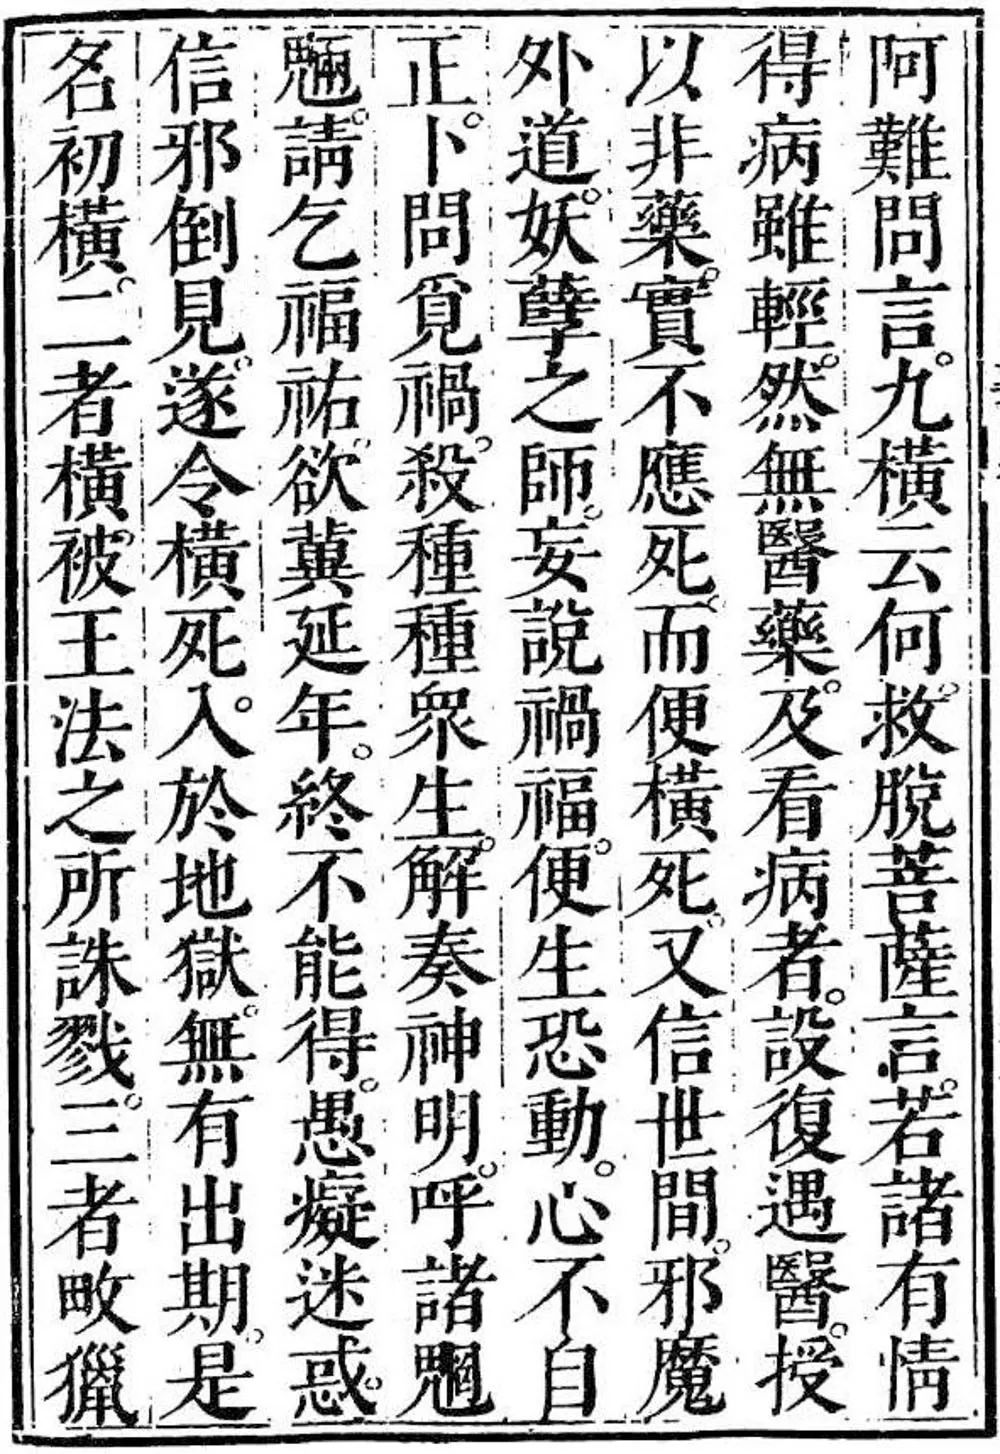 阿難問言。九橫云何。救脫菩薩言。若諸有情
得病雖輕。然無醫藥。及看病者。設復遇醫。授
以非藥。實不應死。而便橫死。又信世間。邪魔
外道。妖孽之師。妄說禍福。便生恐動。心不自
正。卜問覓禍。殺種種眾生。解奏神明。呼諸魍
魎。請乞福祐。欲冀延年。終不能得。愚癡迷惑。
信邪倒見。遂令橫死。入於地獄。無有出期。是
名初橫。二者橫被。王法之所誅戮。三者畋獵